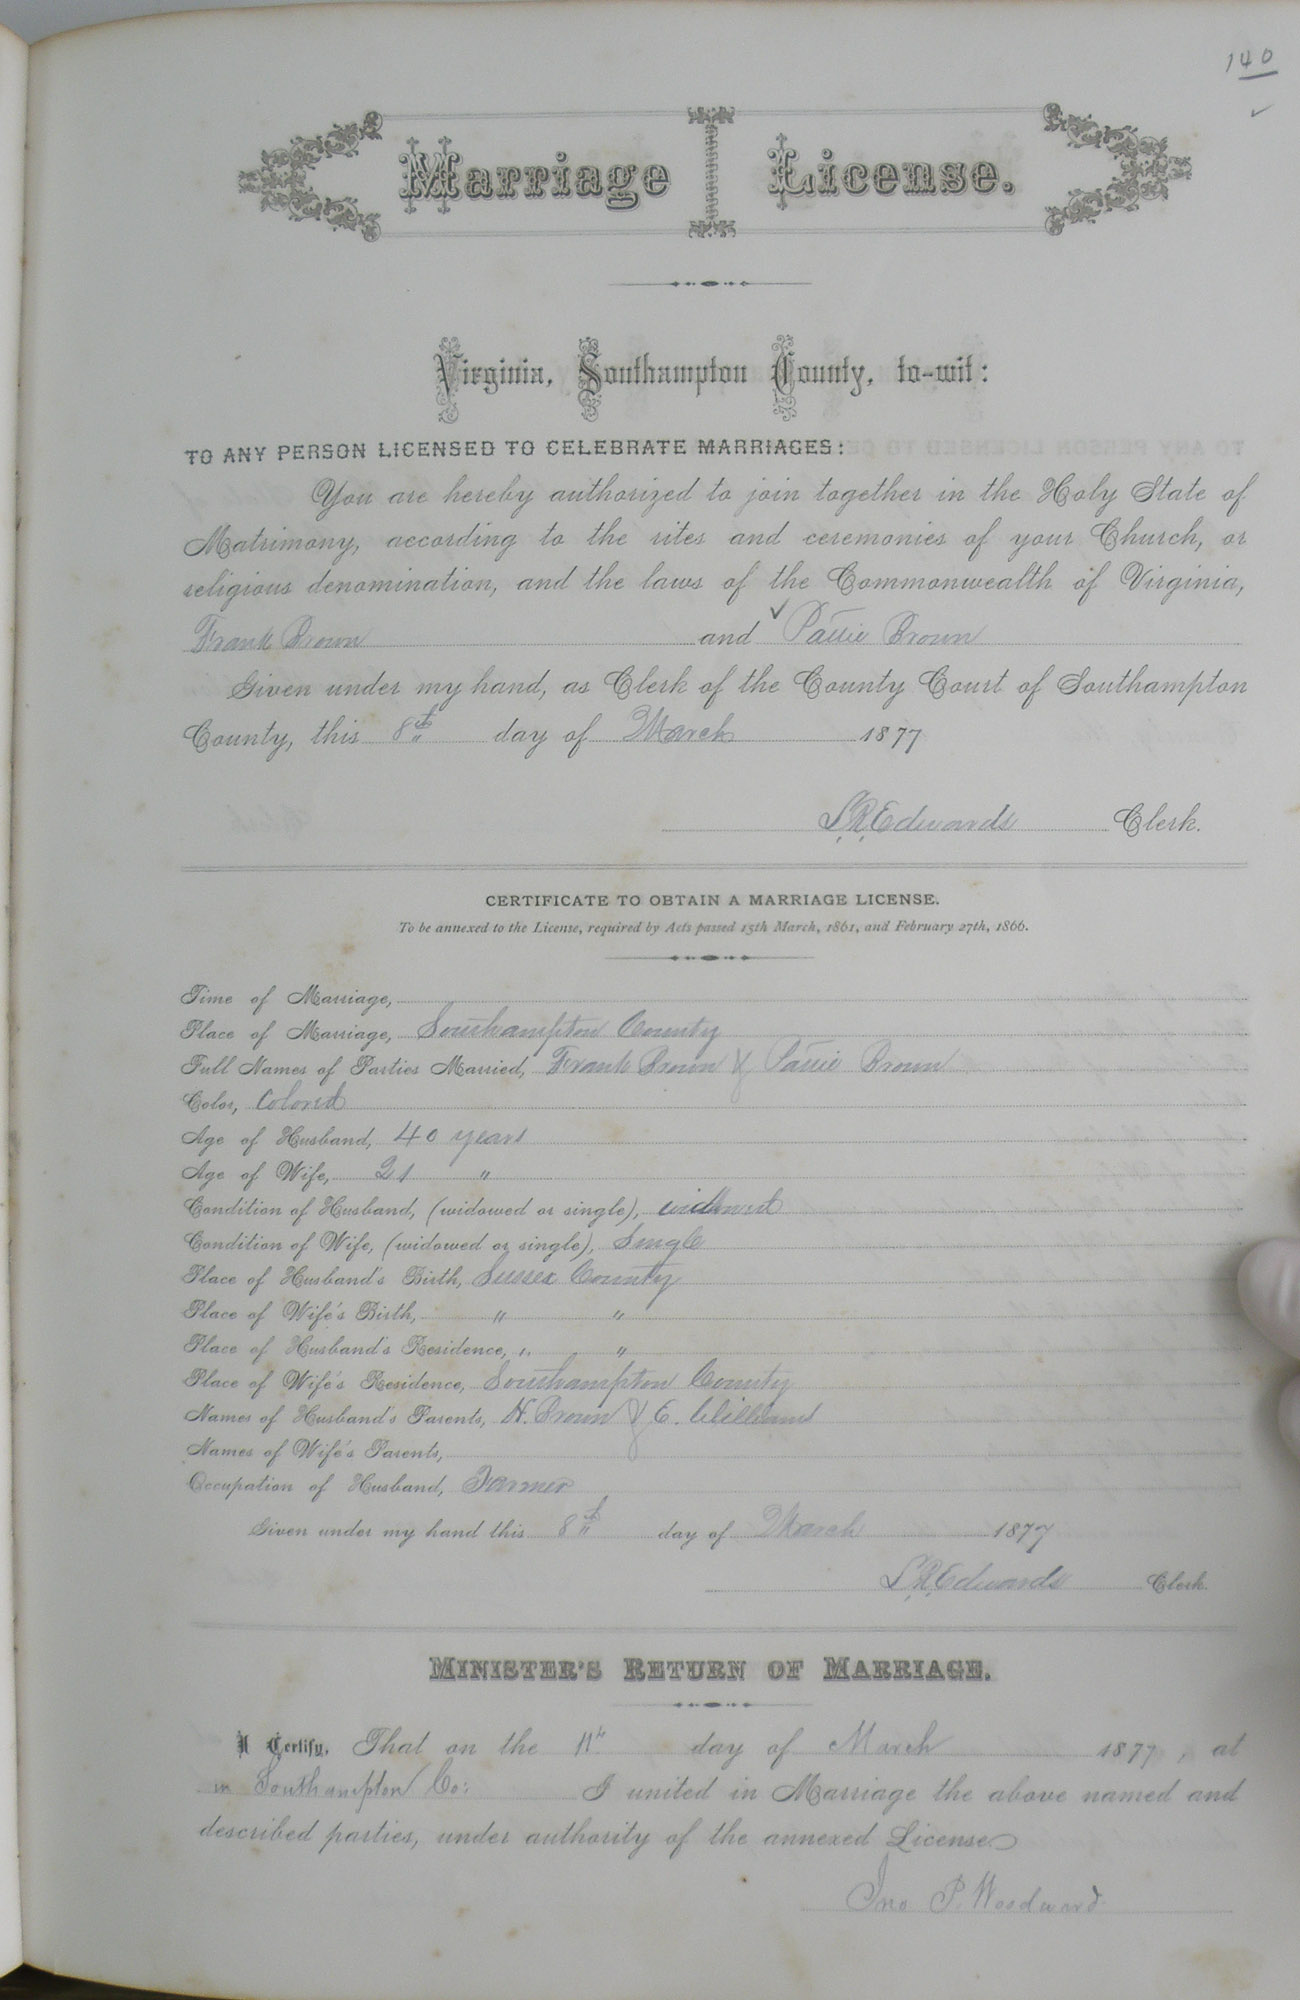 140
Marriage License.
Virginia, Southampton County, to-wit:
TO ANY PERSON LICENSED TO CELEBRATE MARRIAGES:
You are hereby authorized to join together in the Holy State of
Matrimony, according to the rites and ceremonies of your Church, or
religious denomination, and the laws of the Commonwealth of Virginia,
Frank Brown and Pattie Brown
Given under my hand, as Clerk of the County Court of Southampton
County, this 8th day of March 1877
L.R. Edwards Clerk.
CERTIFICATE TO OBTAIN A MARRIAGE LICENSE.
To be annexed to the License, required by Acts passed 15th March, 1861, and February 27th, 1866.
Time of Marriage,
Place of Marriage, Southampton County
Full Names of Parties Married, Frank Brown & Pattie Brown
Color, Colored
Age of Husband, 40 years
Age of Wife, 21 "
Condition of Husband, (widowed or single), widowed
Condition of Wife, (widowed or single), Single
Place of Husband's Birth, Sussex County
Place of Wife's Birth, " "
Place of Husband's Residence, " "
Place of Wife's Residence, Southampton County
Names of Husband's Parents, H. Brown & E. Williams
Names of Wife's Parents,
Occupation of Husband, Farmer
Given under my hand this 8th day of March 1877
L.R. Edwards Clerk.
MINISTER'S RETURN OF MARRIAGE.
I Certify, That on the 11th day of March 1877, at
in Southampton Co: I united in Marriage the above named and
described parties, under authority of the annexed License.
Jno P. Woodward